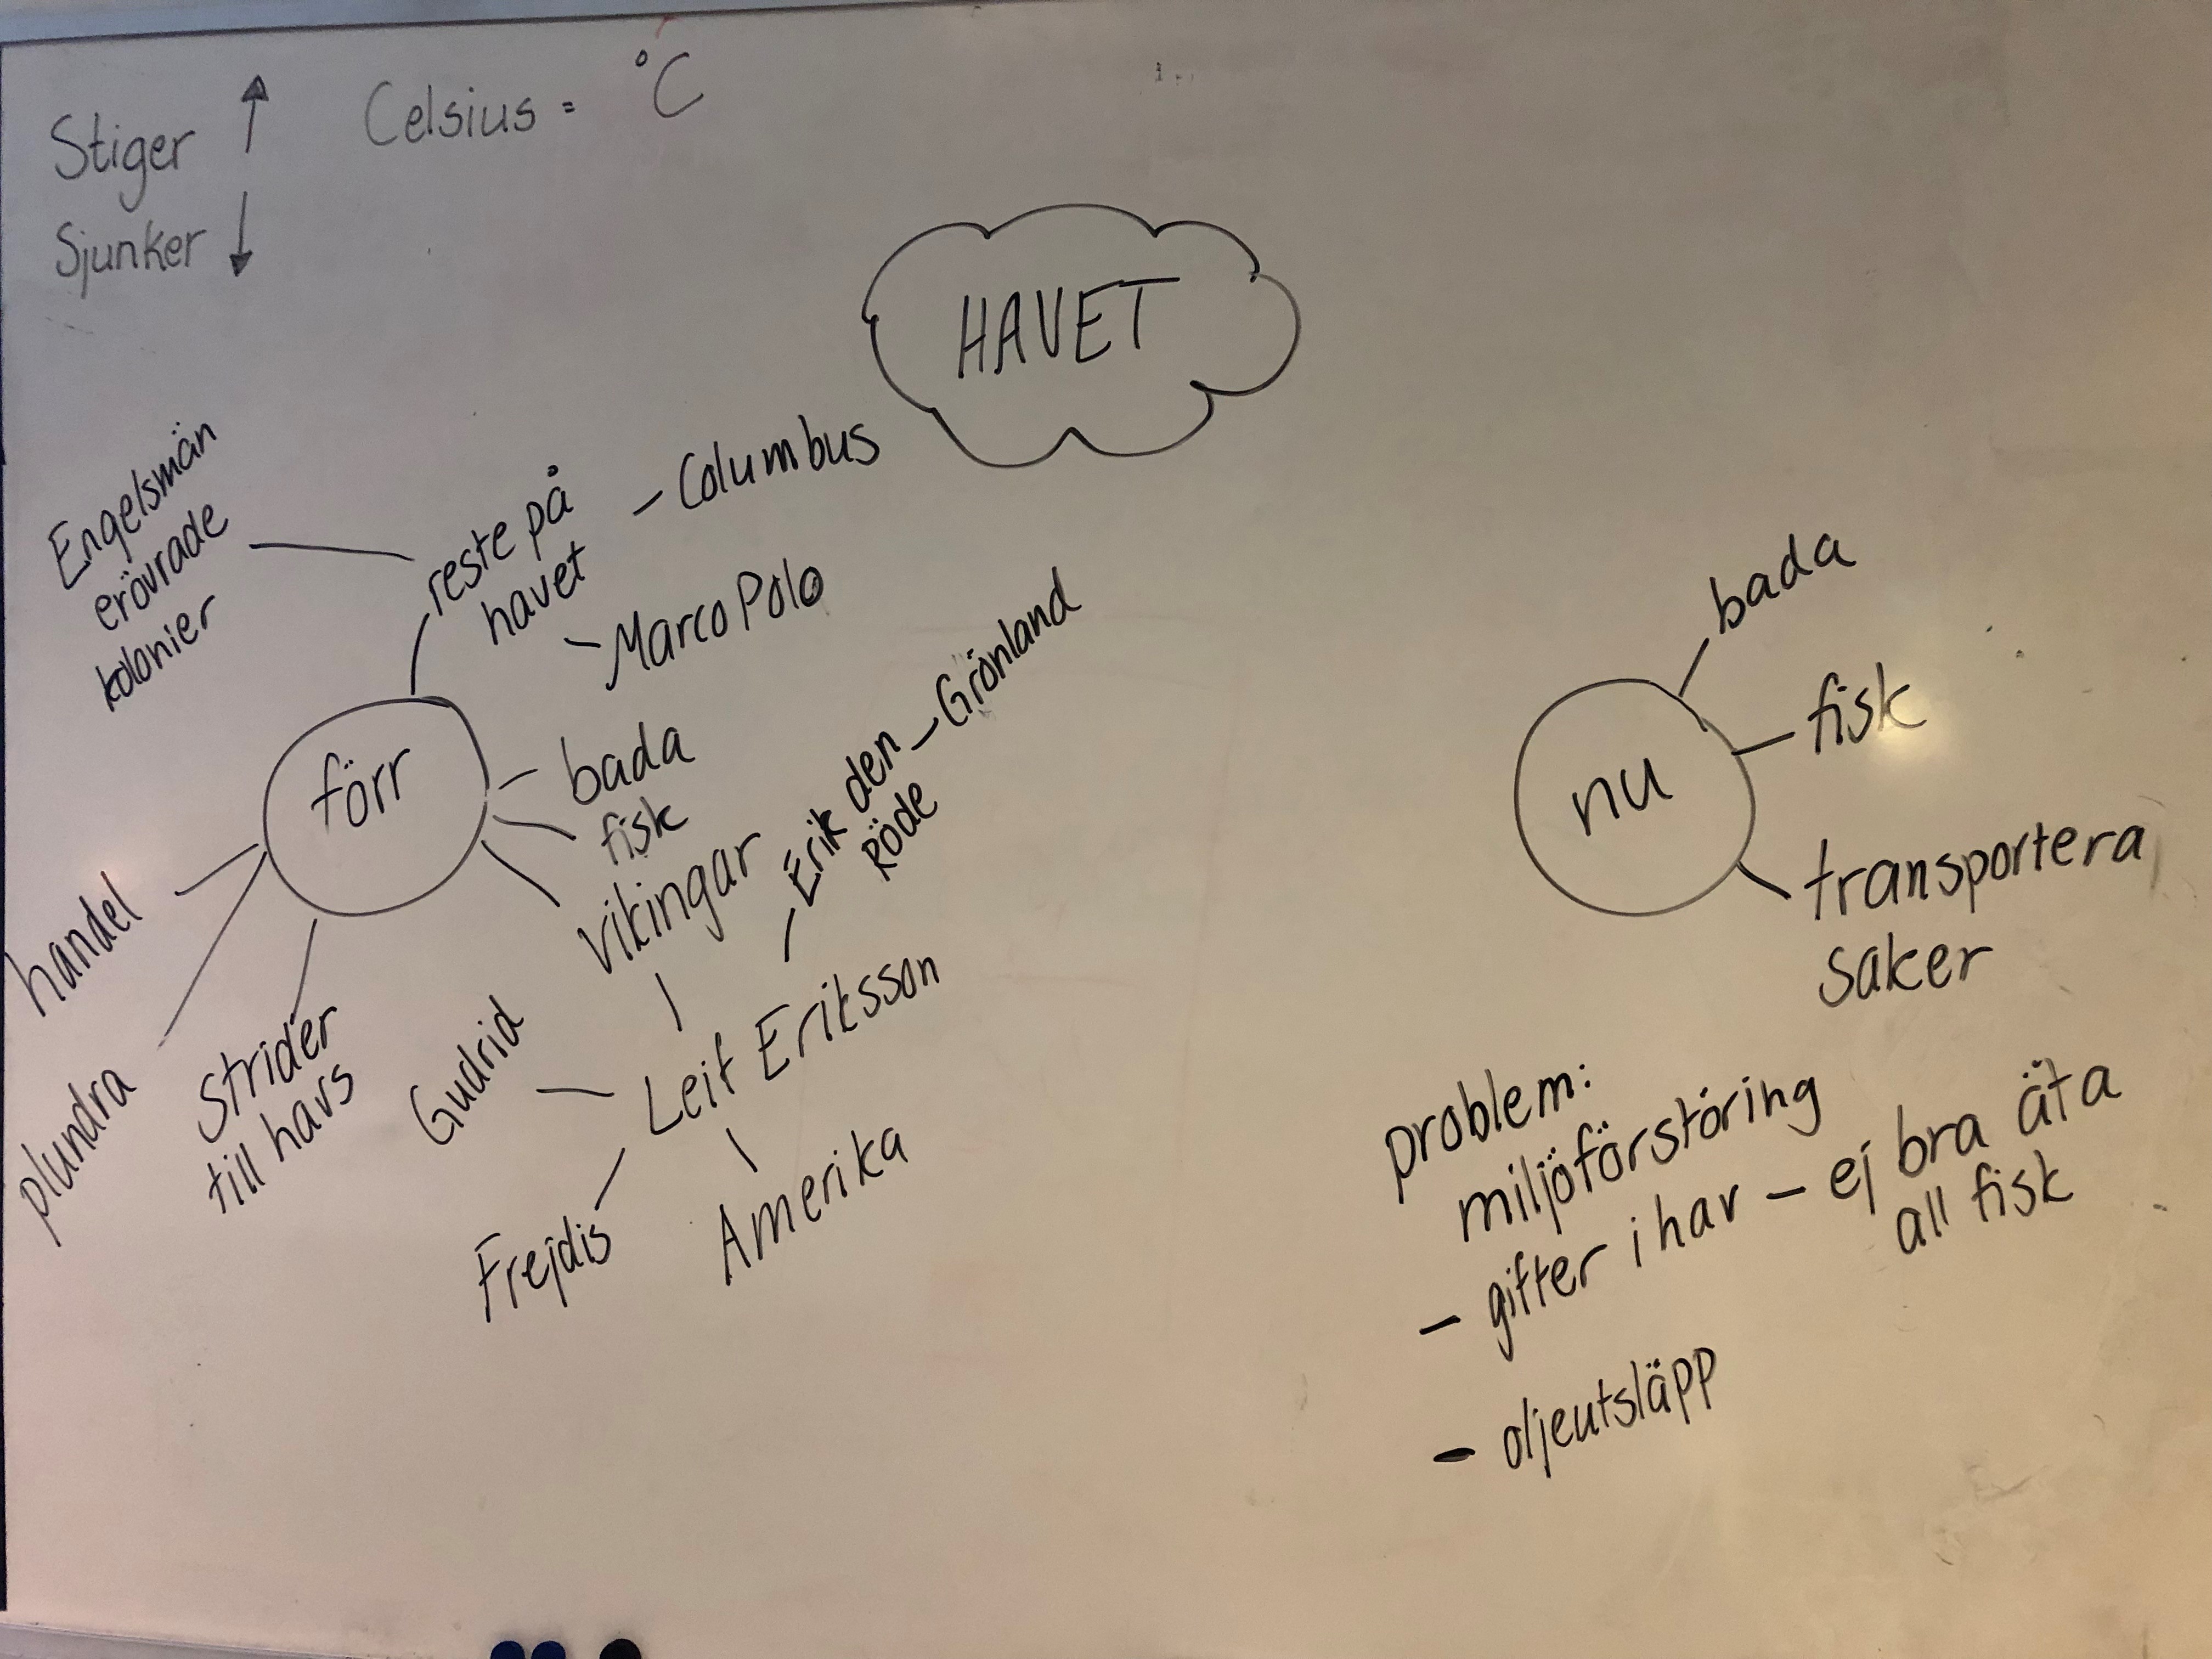 Stiger ↑
Celsius = °C
Sjunker ↓
HAVET
Engelsmän
erövrade
kolonier
reste på
havet
- Columbus
- Marco Polo
förr
bada
fisk
vikingar
Erik den - Grönland
Röde
Leif Eriksson
Gudrid
Frejdis
Amerika
handel
plundra
Strider
till havs
nu
bada
fisk
transportera
saker
problem:
miljöförstöring
- gifter i hav - ej bra äta
all fisk
- oljeutsläpp